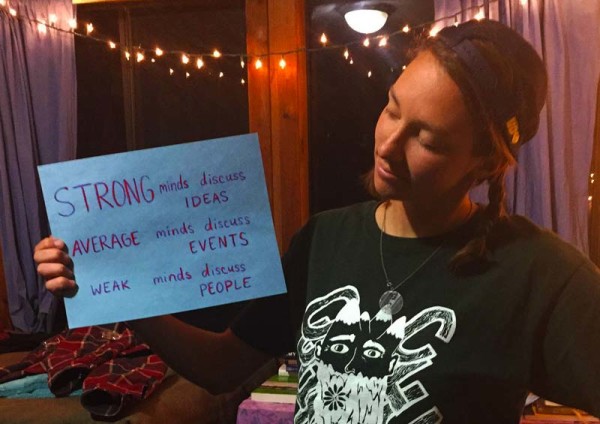 STRONG minds discuss
IDEAS
AVERAGE minds discuss
EVENTS
WEAK minds discuss
PEOPLE